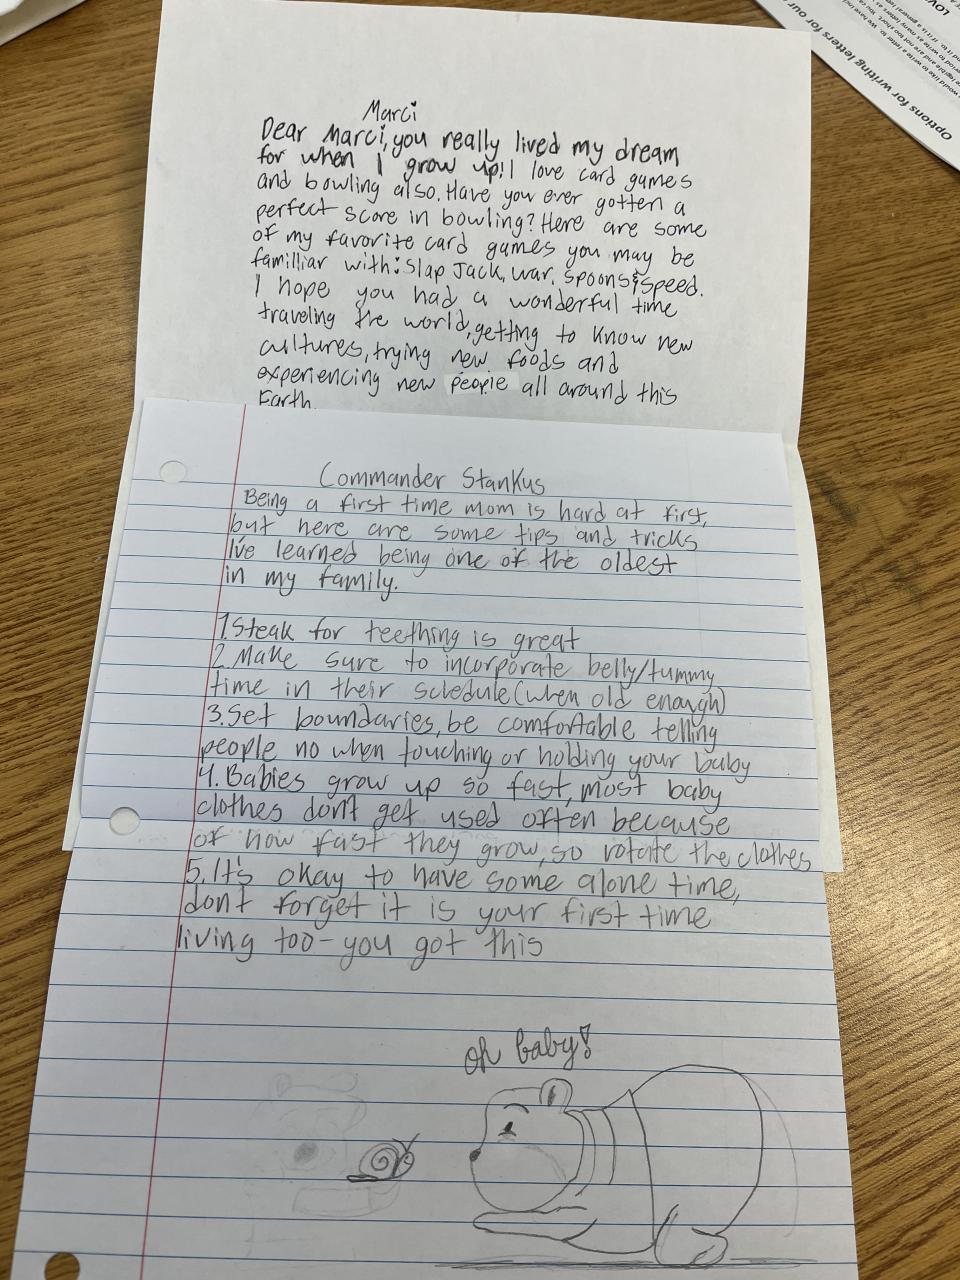 Marci
Dear Marci, you really lived my dream
for when I grow up! I love card games
and bowling also. Have you ever gotten a
perfect score in bowling? Here are some
of my favorite card games you may be
familliar with: Slap Jack, war, spoons & speed.
I hope you had a wonderful time
traveling the world, getting to know new
cultures, trying new foods and
experiencing new people all around this
Earth.
Commander Stankus
Being a first time mom is hard at first,
but here are some tips and tricks
I've learned being one of the oldest
in my family.
1. Steak for teething is great
2. Make sure to incorporate belly/tummy
time in their schedule (when old enough)
3. Set boundaries, be comfortable telling
people no when touching or holding your baby
4. Babies grow up so fast, most baby
clothes don't get used often because
of how fast they grow, so rotate the clothes
5. It's okay to have some alone time,
dont forget it is your first time
living too - you got this
oh baby!
Options for writing letters for our
would like to write a letter to. We have incl
LOV